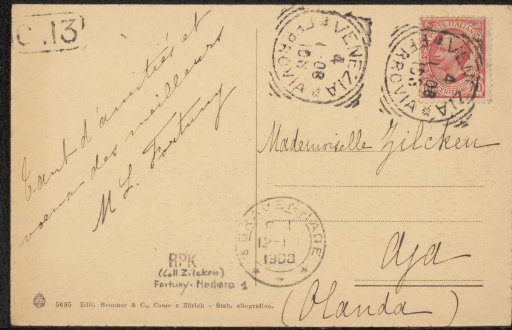 C.13
Tant d'amitiés et
voeux des meilleurs
M L. Fortuny
VENEZIA
4
1 08
10N
FERROVIA
VENEZIA
4
1 08
10N
FERROVIA
Mademoiselle Zilcken
Aja
(Olanda)
'S GRAVENHAGE
12-1
1908
RPK
(Coll Zilcken)
Fortuny-Madrazo 1
5695 Edit. Brunner & C., Como e Zürich - Stab. eliografico.